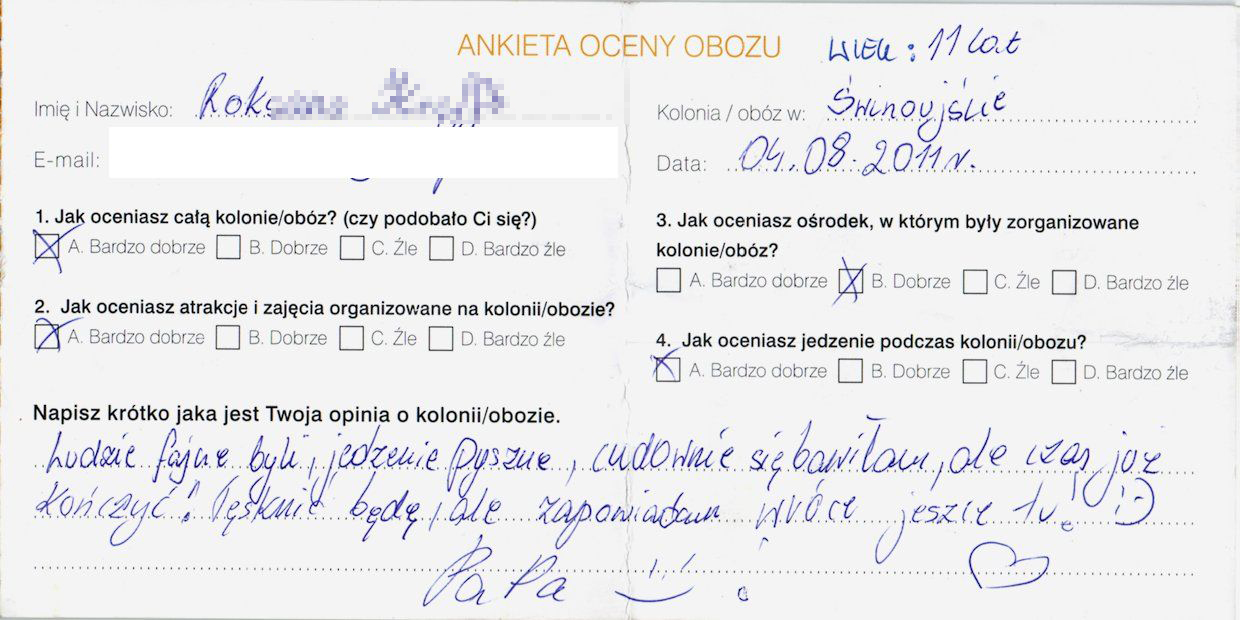 ANKIETA OCENY OBOZU
WIEK: 11 lat
Imię i Nazwisko:
Kolonia / obóz w: Świnoujście
E-mail:
Data: 04.08.2011 r.
1. Jak oceniasz całą kolonie/obóz? (czy podobało Ci się?)
A. Bardzo dobrze B. Dobrze C. Źle D. Bardzo źle
2. Jak oceniasz atrakcje i zajęcia organizowane na kolonii/obozie?
A. Bardzo dobrze B. Dobrze C. Źle D. Bardzo źle
3. Jak oceniasz ośrodek, w którym były zorganizowane
kolonie/obóz?
A. Bardzo dobrze B. Dobrze C. Źle D. Bardzo źle
4. Jak oceniasz jedzenie podczas kolonii/obozu?
A. Bardzo dobrze B. Dobrze C. Źle D. Bardzo źle
Napisz krótko jaka jest Twoja opinia o kolonii/obozie.
Ludzie fajne byli, jedzenie pyszne, cudownie się bawiłam, ale czas już
kończyć! Tęsknić będę, ale zapowiadam wrócę jeszcze tu! :)
Pa Pa :) .